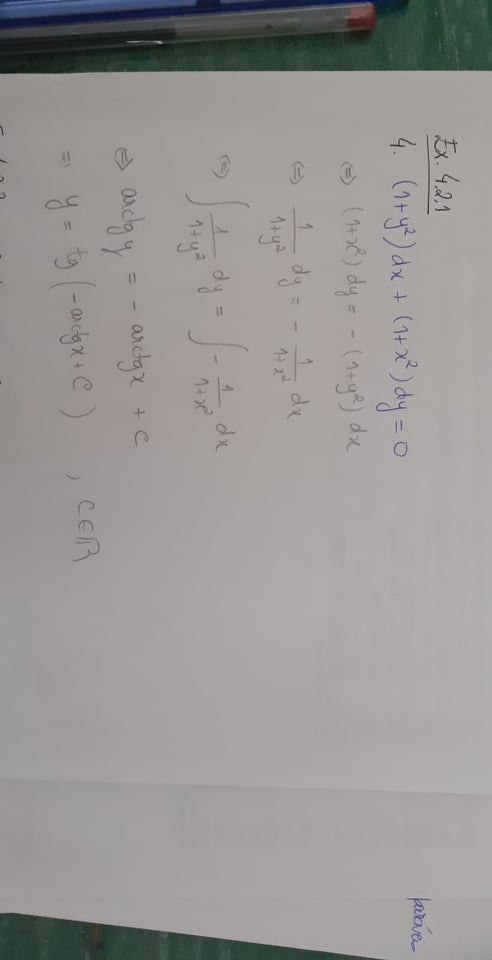 Ex. 4.2.1
4. (1+y²) dx + (1+x²) dy = 0
⇔ (1+x²) dy = - (1+y²) dx
⇔ 1/(1+y²) dy = - 1/(1+x²) dx
⇔ ∫ 1/(1+y²) dy = ∫ - 1/(1+x²) dx
⇔ arctg y = - arctg x + C
= y = tg (-arctg x + C) , C∈ℝ